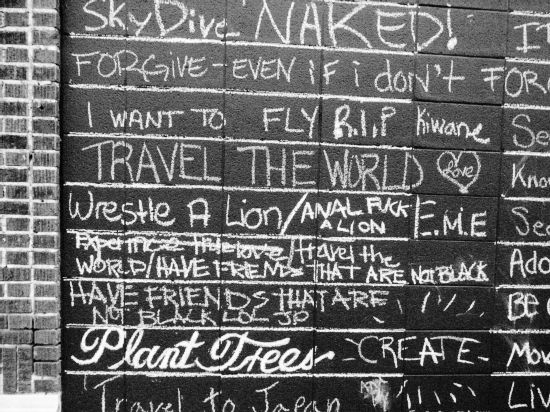 SkyDive NAKED!
FORGIVE - EVEN iF i don't FOR
I WANT TO FLY R.I.P Kiwane
TRAVEL THE WORLD of Love
Wrestle A Lion/ANAL FUCK A LION E.M.E
Experience true love/travel the
WORLD/HAVE FRIENDS THAT ARE NOT BLACK
HAVE FRIENDS THAT ARE
NOT BLACK LOL JP
Plant Trees -CREATE-
Travel to Japan
IT
Se
Know
See
Ado
BE
Mov
Liv